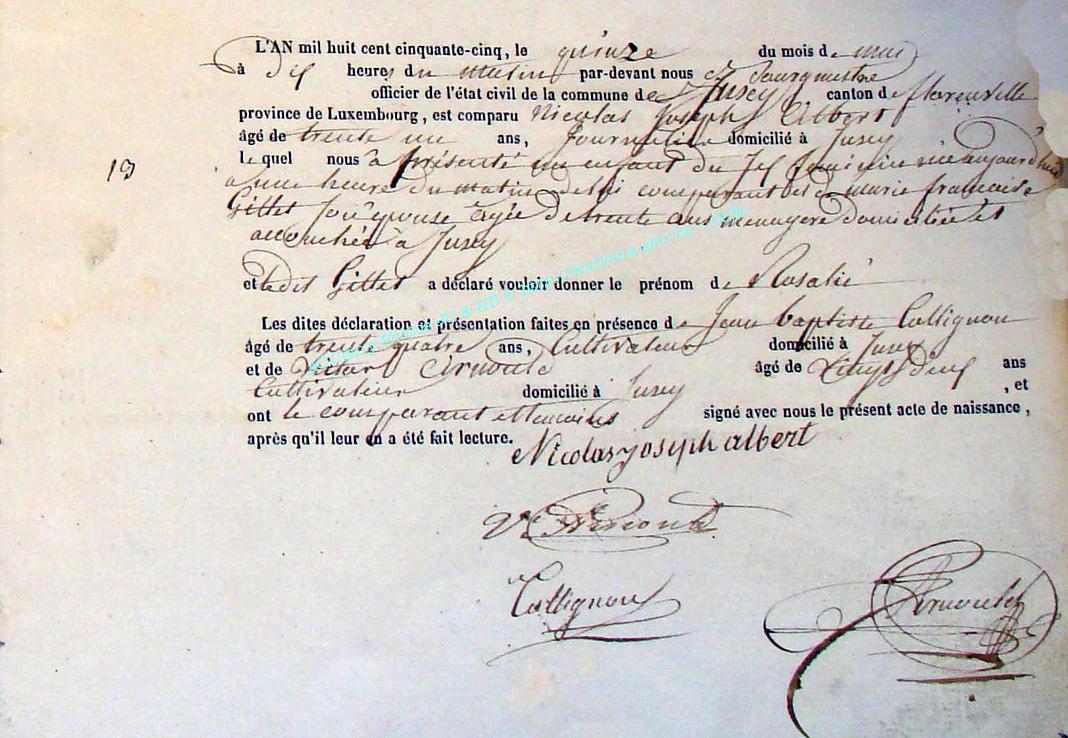 L'AN mil huit cent cinquante-cinq, le quinze du mois de mai
à dix heures du matin par-devant nous Bourgmestre
officier de l'état civil de la commune de Jusey canton de florenville
province de Luxembourg, est comparu Nicolas Joseph Albert
âgé de trente un ans, Journalier domicilié à Jusey
19
lequel nous a présenté un enfant du sexe feminin née aujourd'hui
a une heure du matin de lui comparant et de marie francoise
Gillet son épouse agée de trente ans menagere domiciliée et
accouchée à Jusey
et ledit Gillet a déclaré vouloir donner le prénom de Rosalie
Les dites déclaration et présentation faites en présence de Jean baptiste Collignon
âgé de trente quatre ans, Cultivateur domicilié à Jusey
et de Victor Arnould âgé de vingt neuf ans
Cultivateur domicilié à Jusey , et
ont le comparant et temoins signé avec nous le présent acte de naissance,
après qu'il leur en a été fait lecture.
Nicolas joseph albert
Vr Arnould
Collignon
Arnould